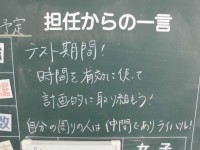 予定
担任からの一言
テスト期間!
時間を有効に使って
計画的に取り組もう!
自分の周りの人は仲間でありライバル!
数
女子